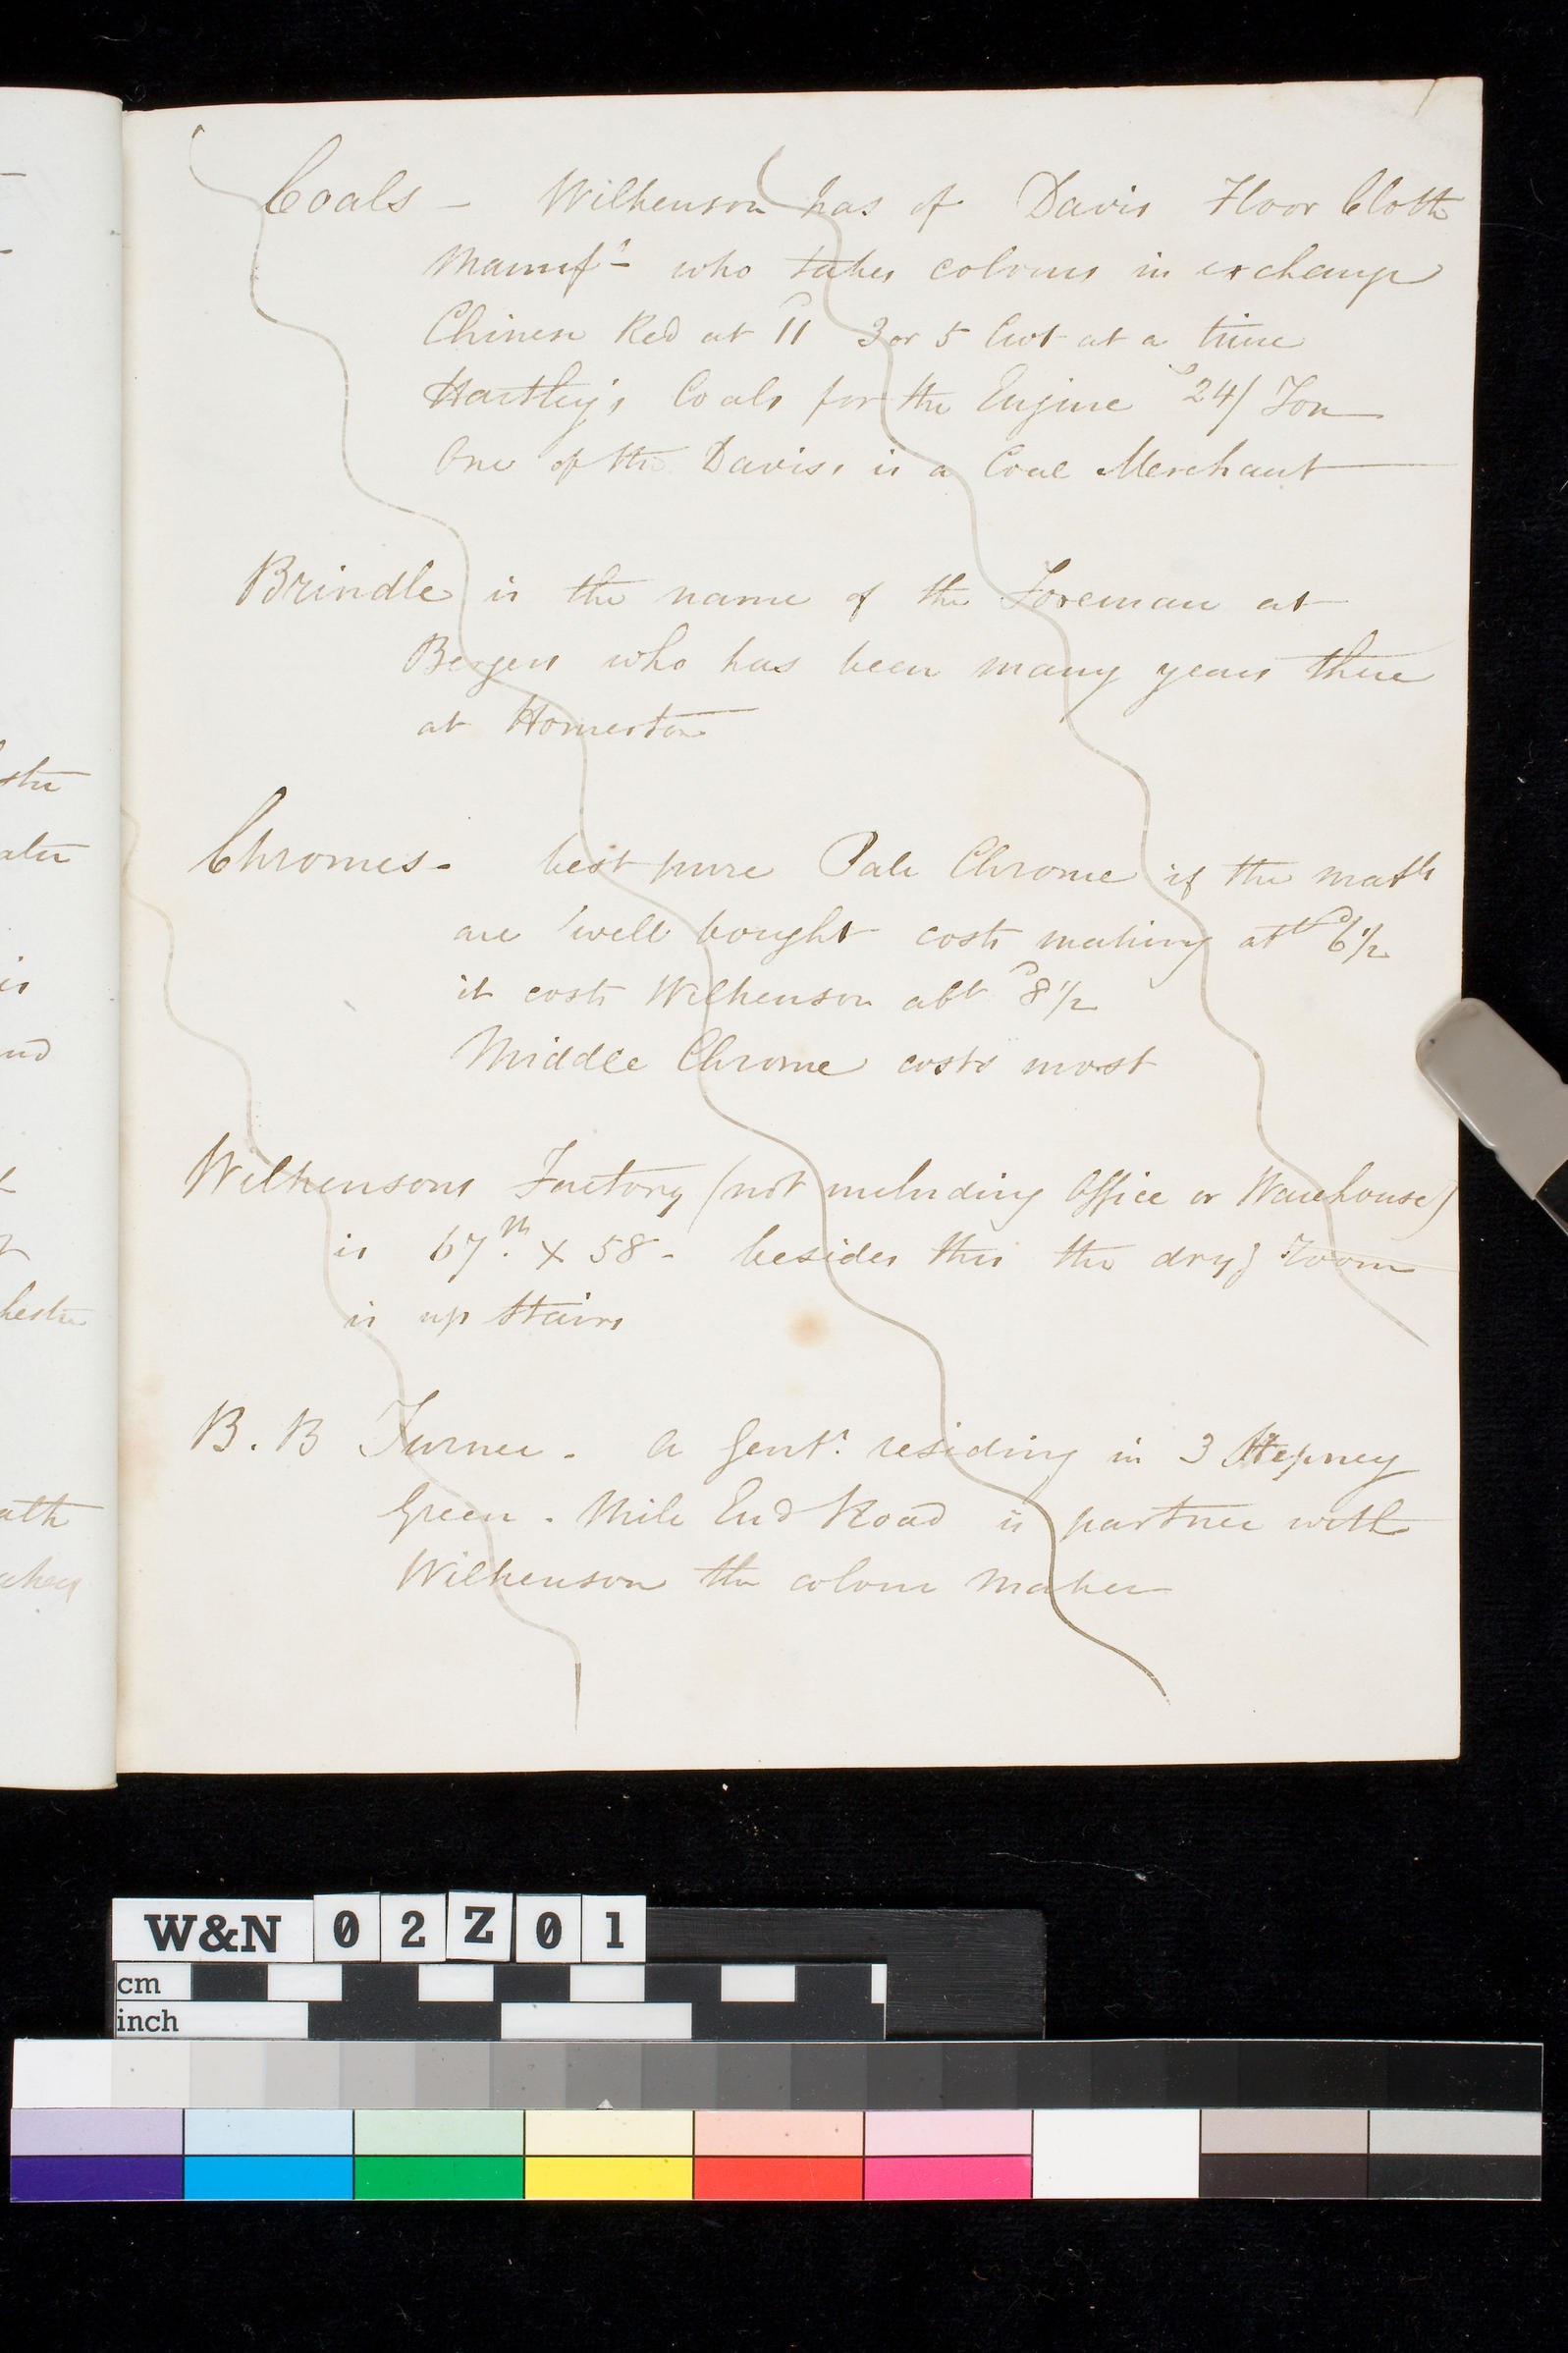 Coals - Wilkenson has of Davis Floor Cloth
Manufr - who takes colours in exchange
Chinese Red at 11 3 or 5 Cwt at a time
Hartley's Coals for the Engine 24/ Ton
One of the Daviss is a Coal Merchant
Brindle is the name of the Foreman at
Bergers who has been many years there
at Homerton
Chromes - best pure Pale Chrome if the matls
are well bought costs making at 6 1/2
it costs Wilkenson abt 8 1/2
Middle Chrome costs most
Wilkensons Factory (not including Office or Warehouse)
is 67 × 58 - besides this the dryg room
is up stairs
B. B Turner - a Gent. residing in 3 Stepney
Green - Mile End Road is partner with
Wilkenson the colour maker
W&N 02Z01
cm
inch